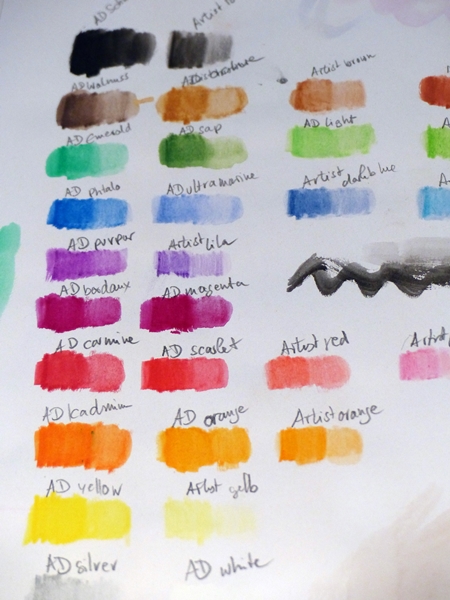 AD Sch
Artist
AD walnuss
AD
Artist brown
AD Emerald
AD sap
AD light
A
AD phtalo
AD ultramarine
Artist darkblue
A
AD purpur
Artist lila
AD bordaux
AD magenta
AD carmine
AD scarlet
Artist red
Artist
AD kadmium
AD orange
Artist orange
AD yellow
Artist gelb
AD silver
AD white